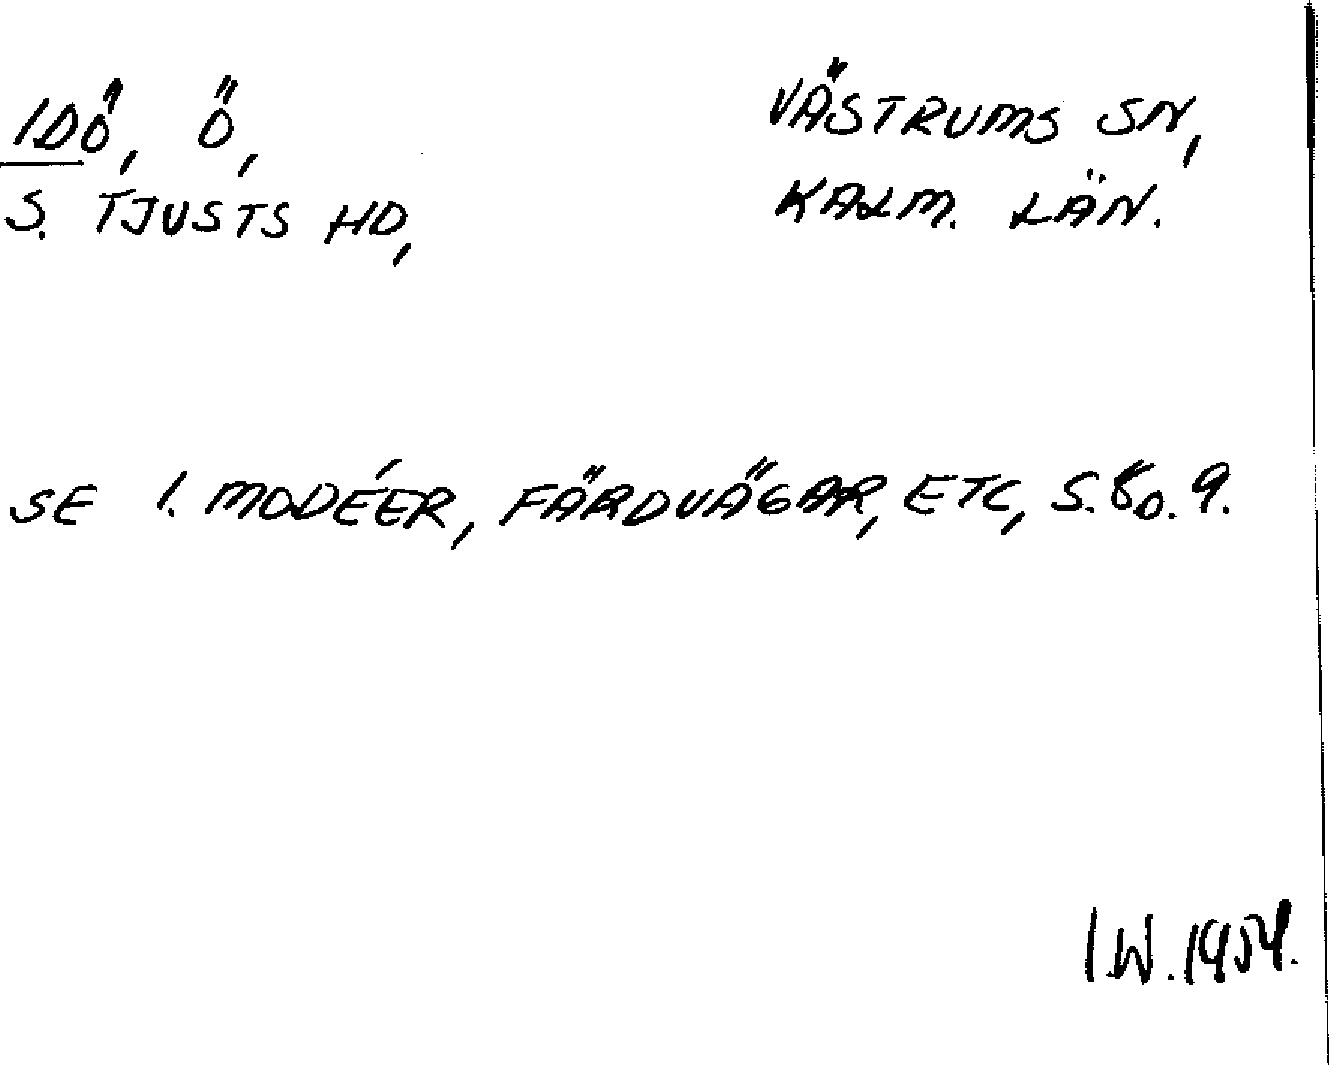 IDÖ, Ö, VÄSTRUMS SN,
S. TJUSTS HD, KALM. LÄN.
SE I. MODÉER, FÄRDVÄGAR, ETC, S. 80. 9.
I.W. 1954.